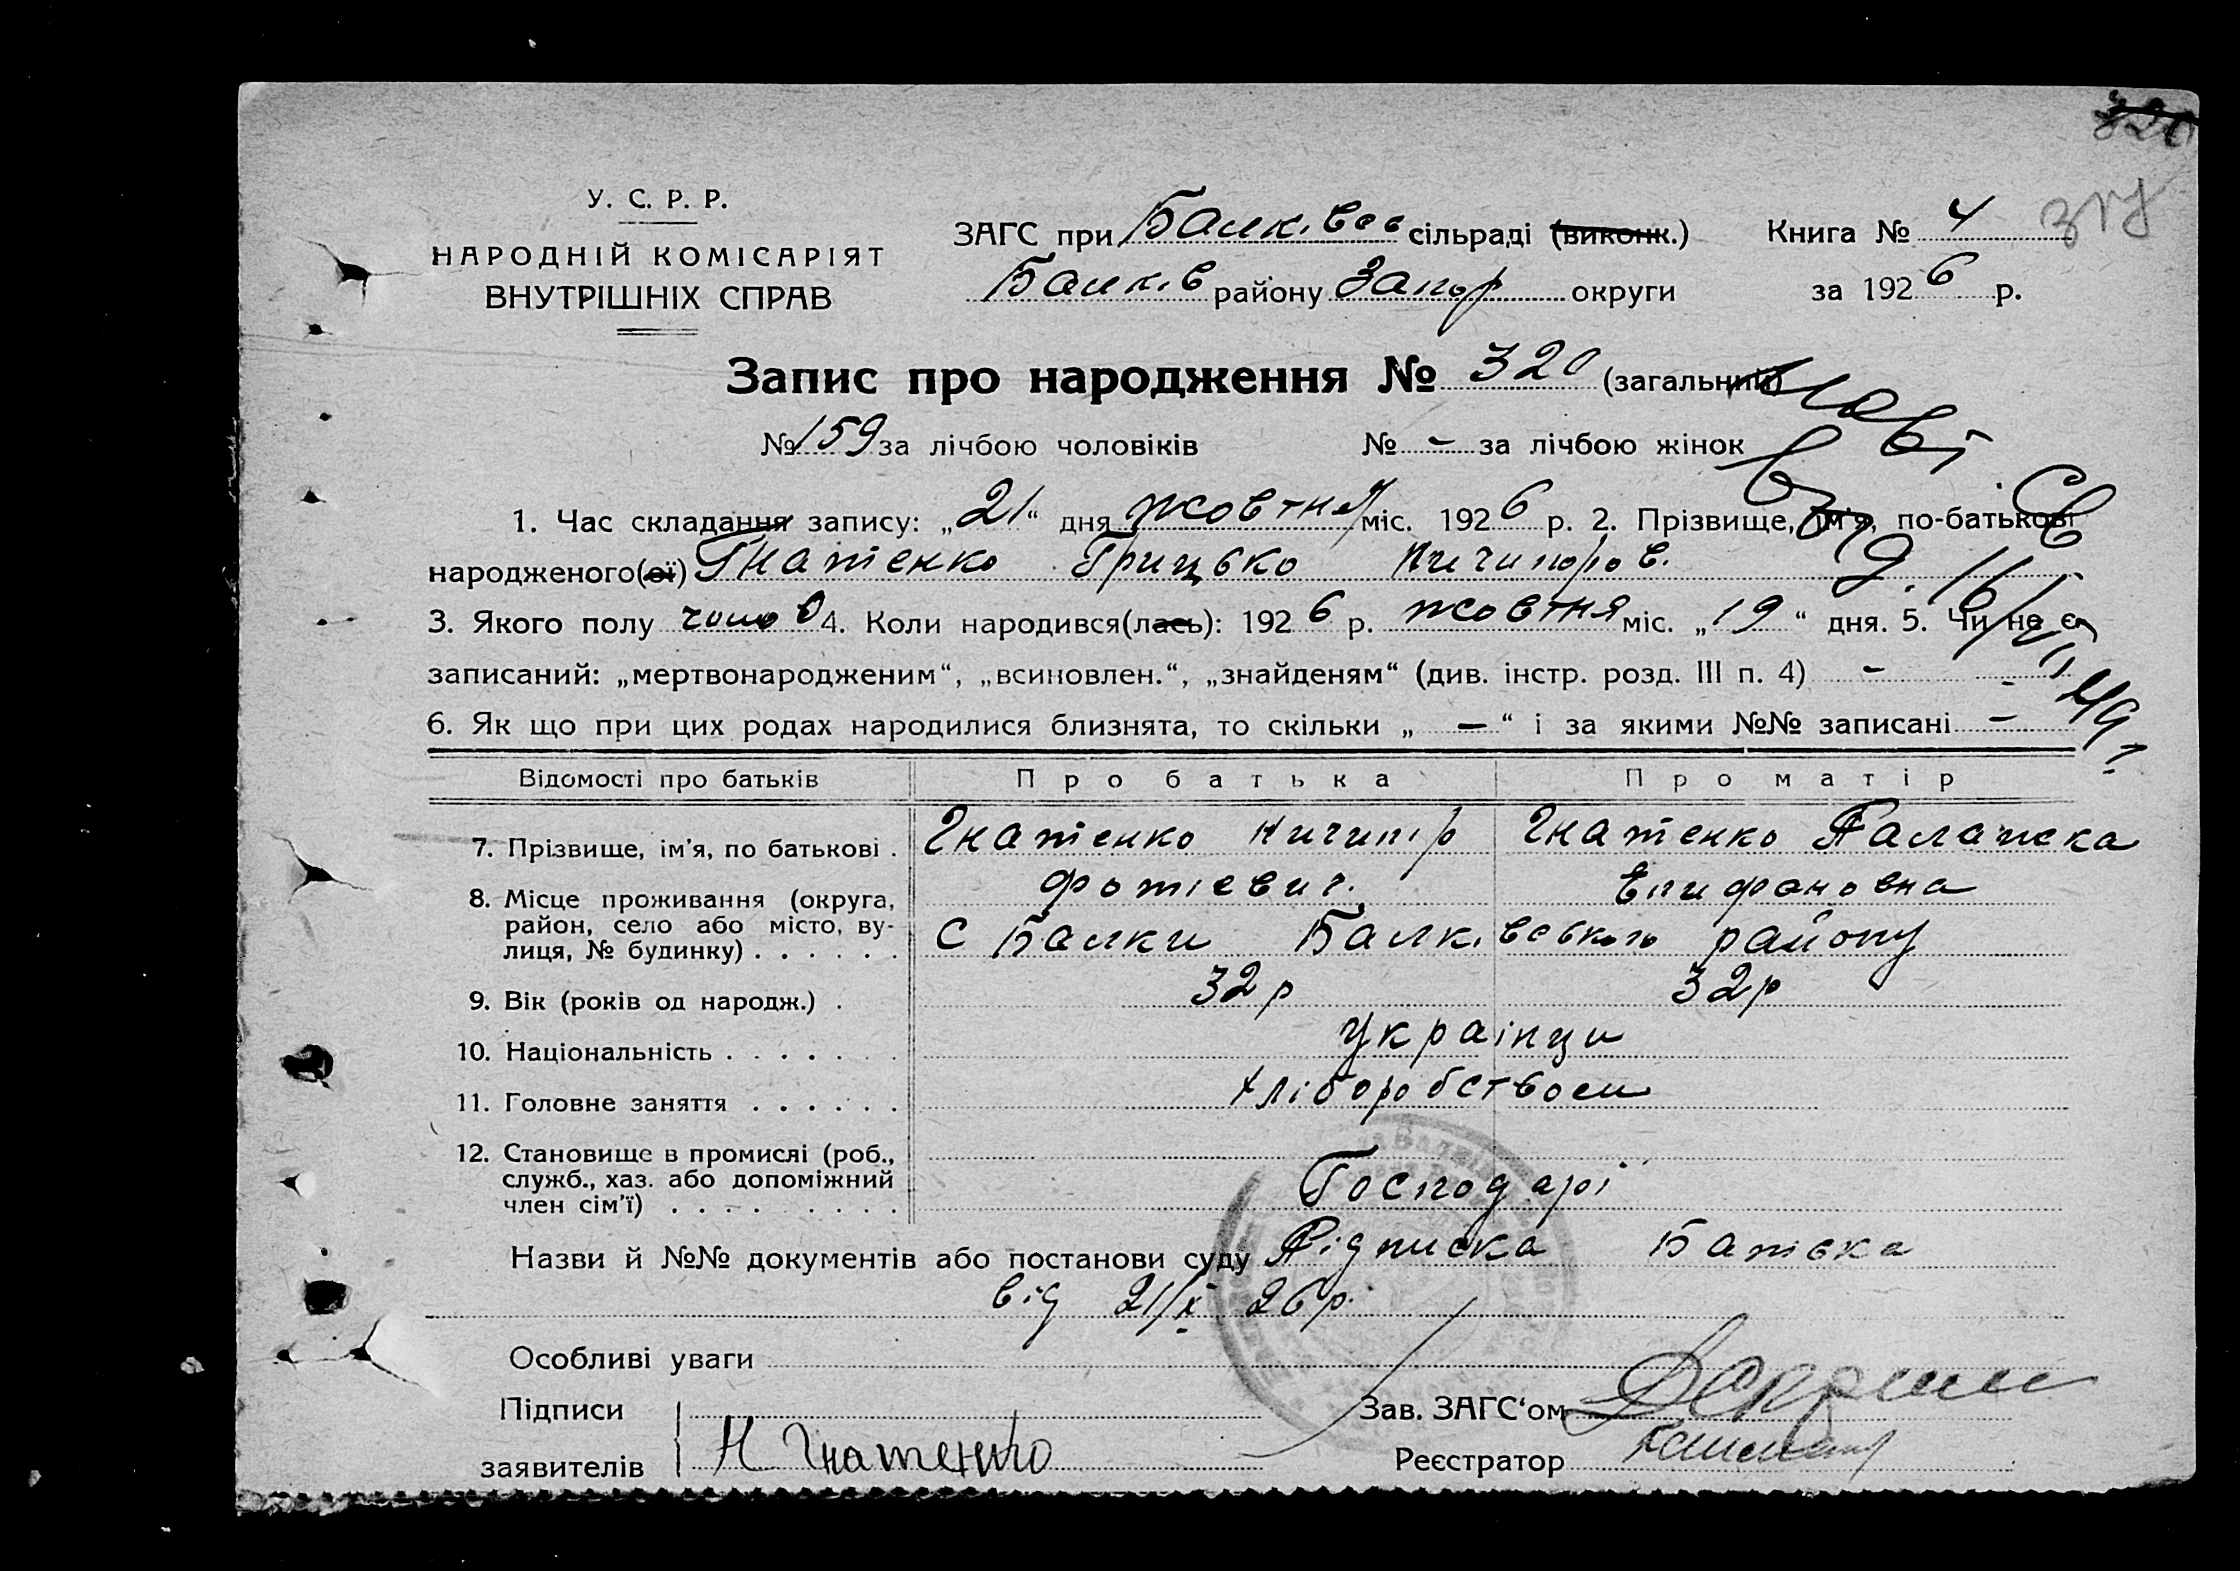 320
У. С. Р. Р.
НАРОДНІЙ КОМІСАРІЯТ
ВНУТРІШНІХ СПРАВ
ЗАГС при Балківс сільраді (виконк.) Книга № 4
Балків району Запор округи за 1926 р.
Запис про народження № 320 (загальний)
№ 159 за лічбою чоловіків № – за лічбою жінок
1. Час складання запису: „21“ дня жовтня міс. 1926 р. 2. Прізвище, ім'я, по-батькові
народженого(ої) Гнатенко Грицько Ничипоров.
3. Якого полу чолов 4. Коли народився(лась): 1926 р. жовтня міс. „19“ дня. 5. Чи не є
записаний: „мертвонародженим“, „всиновлен.“, „знайденям“ (див. інстр. розд. III п. 4) –
6. Як що при цих родах народилися близнята, то скільки „ — “ і за якими №№ записані –
Відомості про батьків Про батька Про матір
7. Прізвище, ім'я, по батькові . Гнатенко Ничипір Гнатенко Палажка
Фотієвич. Епифановна
8. Місце проживання (округа,
район, село або місто, ву-
лиця, № будинку) . . . . . . С Балки Балківського району
9. Вік (років од народж.) . 32 р 32 р
10. Національність . . . . . . Українци
11. Головне заняття . . . . . . Хліборобством
12. Становище в промислі (роб.,
служб., хаз. або допоміжний
член сім'ї) . . . . . . . . Господарі
Назви й №№ документів або постанови суду Підписка Батька
від 21/X 26 р.
Особливі уваги
Підписи
заявителів Н Гнатенко
Зав. ЗАГС'ом
Реєстратор